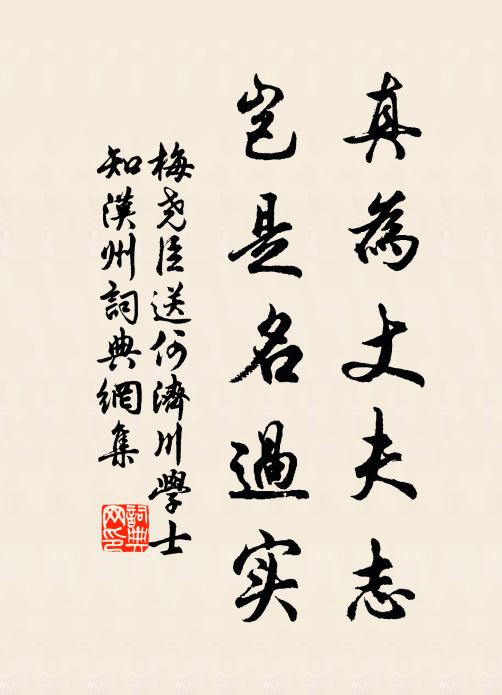 真為丈夫志
豈是名過实
梅尧臣送何濟川學士
知漢州詞典網集
詞典网印